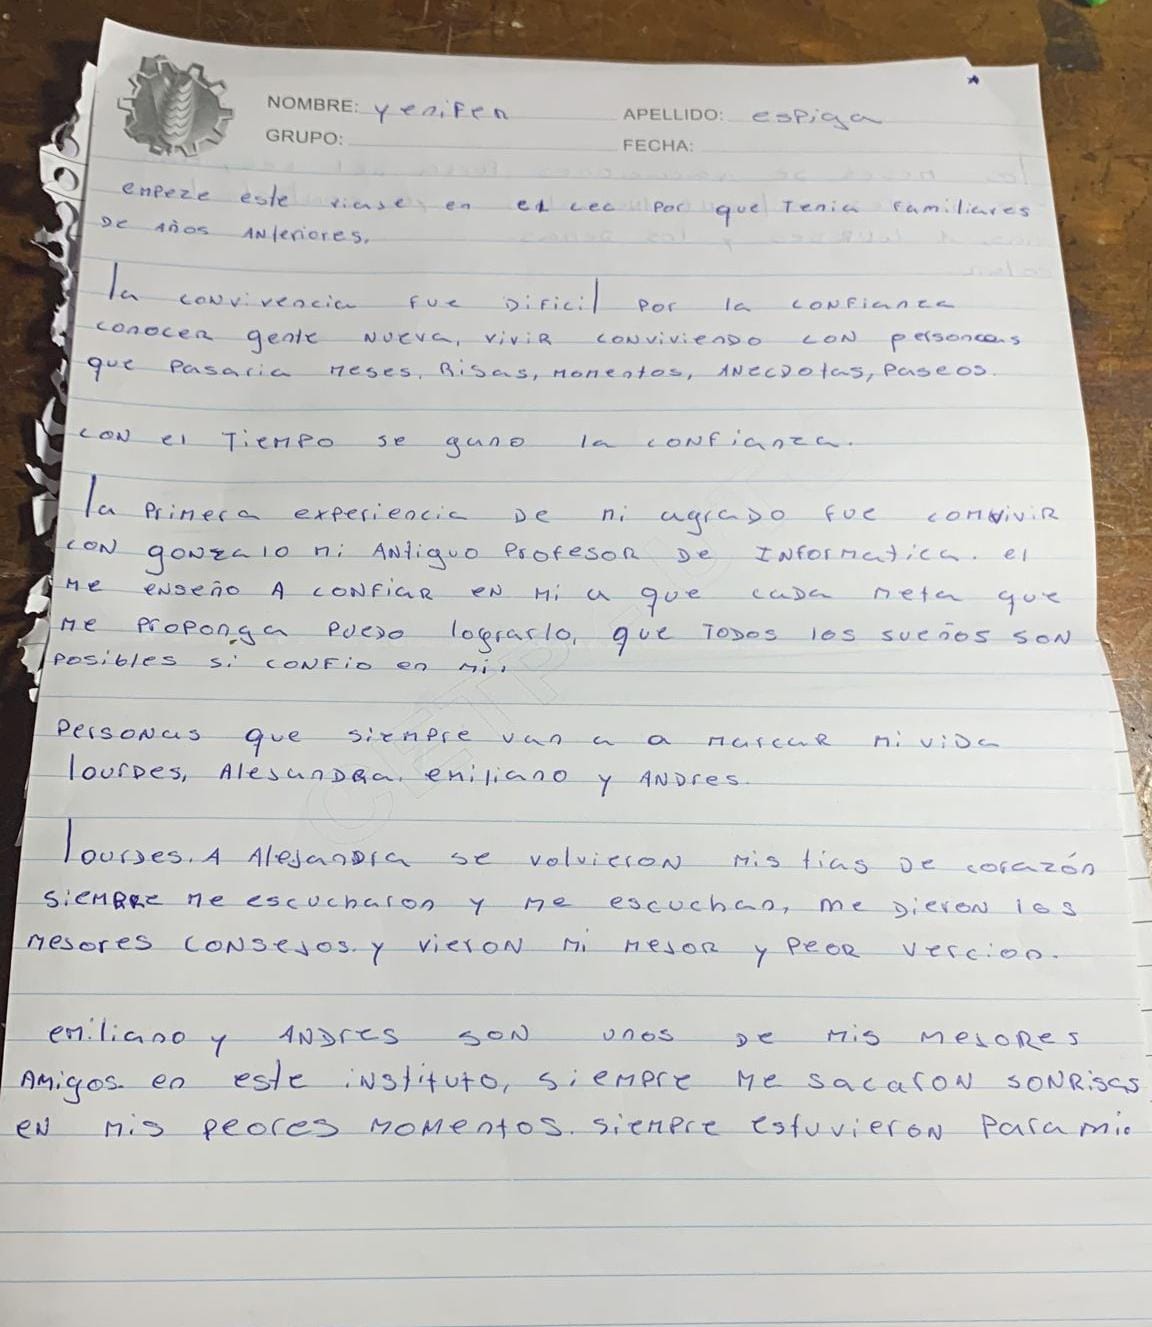 NOMBRE: yenifer APELLIDO: espiga
GRUPO: FECHA:
empeze este viase en el cec por que Tenia Familiares
De Años Anteriores.
la convivencia fue Dificil por la confianza
conocer gente nueva, vivir conviviendo con personas
que pasaria meses. Risas, momentos, Anecdotas, paseos.
con el Tiempo se gano la confianza.
la primera experiencia De mi agrado fue convivir
con gonzalo mi Antiguo profesor De Informatica. el
me enseño A confiar en mi a que cada meta que
me proponga puedo lograrlo, que Todos los sueños son
posibles si confio en mi.
personas que siempre van a a marcar mi vida
lourdes, Alesandra. emiliano y Andres.
lourdes. A Alejandra se volvieron mis tias De corazón
siempre me escucharon y me escuchan, me Dieron los
mesores consejos. y vieron mi mejor y peor vercion.
emiliano y Andres son unos De mis mesores
Amigos. en este instituto, siempre me sacaron sonrisas
en mis peores momentos. siempre estuvieron para mi.
CETP-UTU